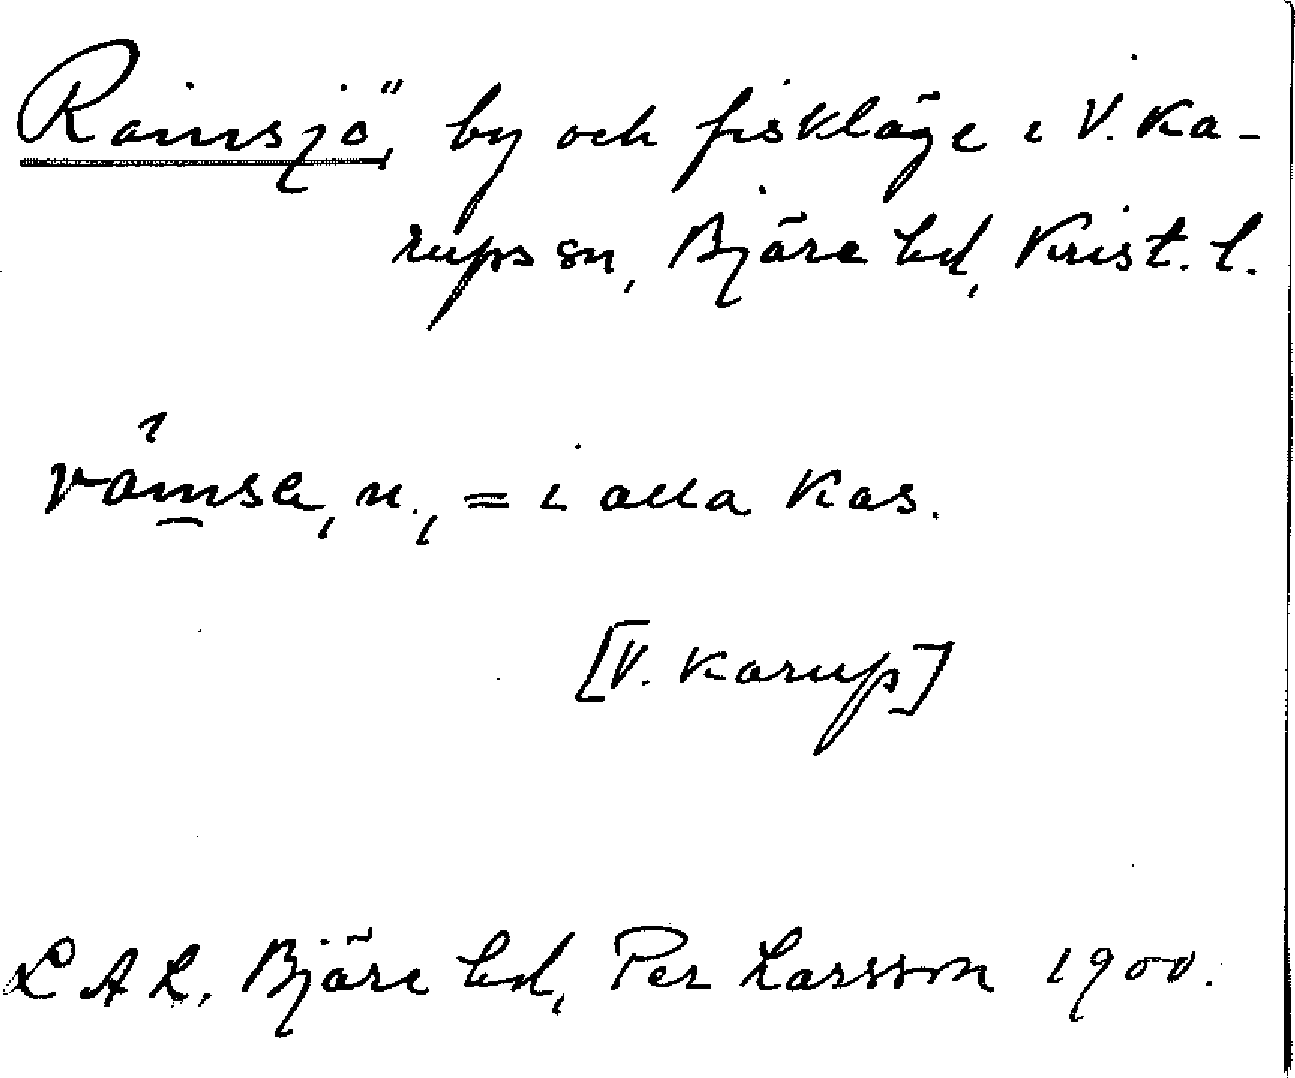 Ramsjö, by och fiskläge i V. Ka-
rups sn, Bjäre hd, Krist. l.
n., = i alla kas.
[V. Karup]
LAL, Bjäre hd, Per Larsson 1900.